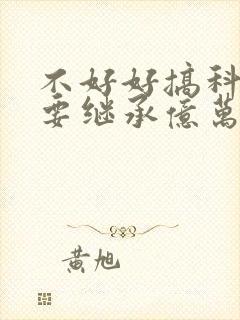 不好好搞科
要继承億萬
黃旭